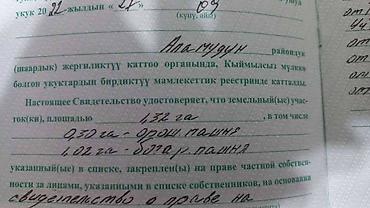 укук 20 22 жылдын "27" 09
(күнү, айы)
Аламүдүн райондук
(шаардык) жергиликтүү каттоо органында, Кыймылсыз мүлккө
болгон укуктардын бирдиктүү мамлекеттик реестринде катталды.
Настоящее Свидетельство удостоверяет, что земельный(ые) учас-
ток(ки), площадью 1,32 га, в том числе
0,30 га - орош. пашня
1,02 га - богар. пашня
указанный(ые) в списке, закреплен(ы) на праве частной собствен-
ности за лицами, указанными в списке собственников, на основании
свидетельство о праве на